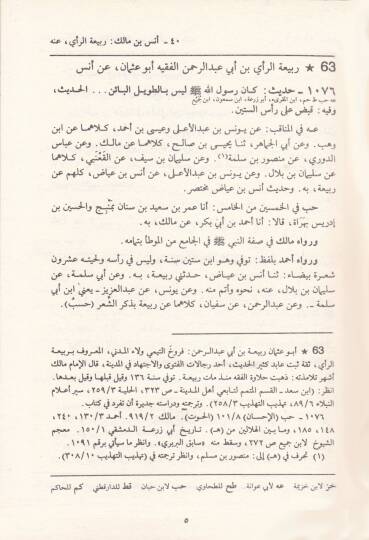 ٤٠ - أنس بن مالك: ربيعة الرأي، عنه
63 ★ ربيعة الرأي بن أبي عبدالرحمن الفقيه أبو عثمان، عن أنس
١٠٧٦ - حديث: كان رسول الله ﷺ ليس بالطويل البائن... الحديث،
وفيه: قبض على رأس الستين.
عه في المناقب: عن يونس بن عبدالأعلى وعيسى بن أحمد، كلاهما عن ابن
وهب. وعن أبي الجماهر، ثنا يحيى بن صالح، كلاهما عن مالك. وعن عباس
الدوري، عن منصور بن سلمة(١). وعن سليمان بن سيف، عن القعنبي، كلاهما
عن سليمان بن بلال. وعن يونس بن عبدالأعلى، عن أنس بن عياض، كلهم عن
ربيعة، به. وحديث أنس بن عياض مختصر.
حب في الخمسين من الخامس: أنا عمر بن سعيد بن سنان بمنبج والحسين بن
إدريس بهراة، قالا: أنا أحمد بن أبي بكر، عن مالك، به.
ورواه مالك في صفة النبي ﷺ في الجامع من الموطأ بتمامه.
ورواه أحمد بلفظ: توفي وهو ابن ستين سنة، وليس في رأسه ولحيته عشرون
شعرة بيضاء: ثنا أنس بن عياض، حدثني ربيعة، به. وعن أبي سلمة، عن
سليمان بن بلال، عنه، نحوه وأتم منه. وعن يونس، عن عبدالعزيز - يعني ابن أبي
سلمة -. وعن عبدالرحمن، عن سفيان، كلاهما عن ربيعة بذكر الشعر (حسب).
63 ★ أبو عثمان ربيعة بن أبي عبدالرحمن: فروخ التيمي ولاء المدني، المعروف بربيعة
الرأي، ثقة ثبت عابد كثير الحديث، أحد رجالات الفتوى والاجتهاد في المدينة، قال الإمام مالك
أشهر تلامذته: ذهبت حلاوة الفقه منذ مات ربيعة. توفي سنة ١٣٦ وقيل قبلها وقيل بعدها.
انظر: (ابن سعد - القسم المتمم لتابعي أهل المدينة - ص ٣٢٣، الحلية ٢٥٩/٣، سير أعلام
النبلاء ٨٩/٦، تهذيب التهذيب ٢٥٨/٣). وترجمته ودراسته جديرة أن تفرد في كتاب.
١٠٧٦ - حب (الإحسان) ١٠١/٨ (الحوت). مالك ٩١٩/٢. أحمد ١٣٠/٣، ٢٤٠،
١٤٨، ١٨٥، وما بين الهلالين من (هـ). تاريخ أبي زرعة الدمشقي ١٥٠/١. معجم
الشيوخ لابن جميع ص ٢٧٢، وسقط منه «سابق البربري». وانظر ما سيأتي برقم ١٠٩١.
(١) تحرف في (هـ) إلى: منصور بن مسلم، وانظر ترجمته في (تهذيب التهذيب ٣٠٨/١٠).
خز لابن خزيمة عه لأبي عوانة طح للطحاوي حب لابن حبان قط للدارقطني كم للحاكم
٥